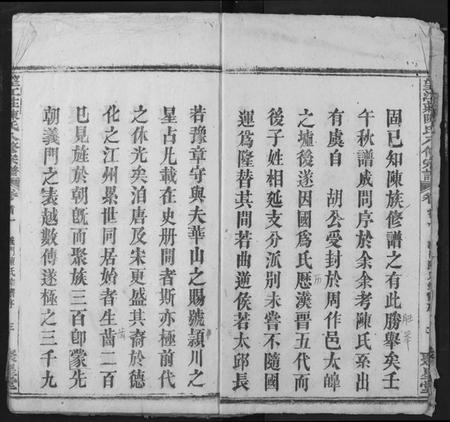 固已知陳族修譜之有此勝舉矣壬
午秋譜成問序於余余考陳氏系出
有虞自 胡公受封於周作邑太皡
之墟後遂因國為氏歷漢晉五代而
後子姓相延支分派別未嘗不隨國
運為隆替其間若曲逆侯若太邱長
若豫章守與夫華山之賜號潁川之
星占凡載在史册間者斯亦極前代
之休光矣洎唐及宋更盛其裔於德
化之江州累世同居始者生齒二百
已見旌於朝既而聚族三百即蒙先
朝義門之表越數傳遂極之三千九